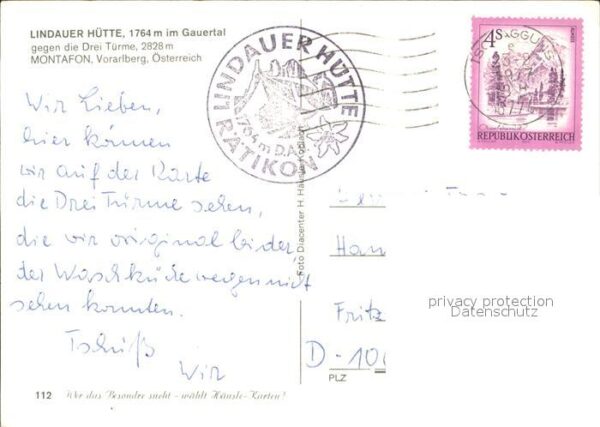 LINDAUER HÜTTE, 1764 m im Gauertal
gegen die Drei Türme, 2828 m
MONTAFON, Vorarlberg, Österreich
LINDAUER HÜTTE
1764 m D.A.
RÄTIKON
4S
REPUBLIK ÖSTERREICH
Wir Lieben,
hier können
wir auf der Karte
die Drei Türme sehen,
die wir original leider
der Waschküche wegen nicht
sehen konnten.
Tschüß
Wir
Foto Diacenter H.
Han
Fritz
D-10
PLZ
privacy protection
Datenschutz
112 Wer das Besondre sucht - wählt Häusle-Karten!